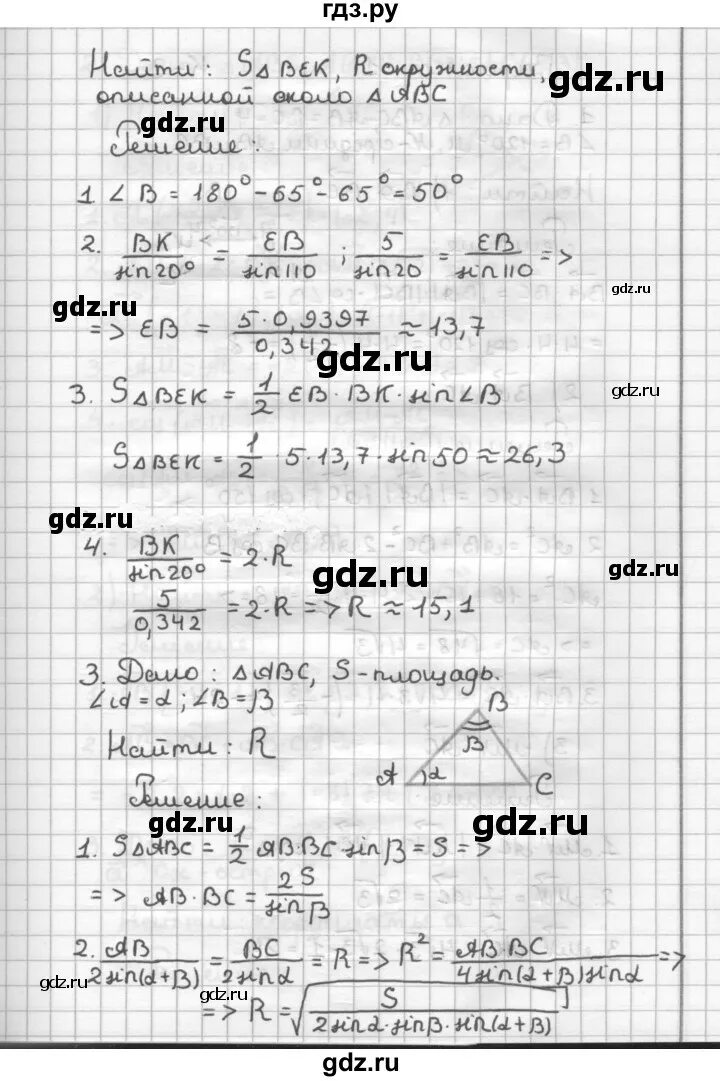 гдз.ру
Найти: S△BEK, R окружности,
gdz.ru
описанной около △ABC
gdz.ru
Решение:
1. ∠B = 180° - 65° - 65° = 50°
2. BK/sin20° = EB/sin110 ; 5/sin20 = EB/sin110 =>
gdz.ru
gdz.ru
=> EB = 5·0,9397/0,342 ≈ 13,7
gdz.ru
3. S△BEK = 1/2 EB·BK·sin∠B
gdz.ru
S△BEK = 1/2 · 5·13,7·sin50 ≈ 26,3
gdz.ru
4. BK/sin20° = 2·R
gdz.ru
gdz.ru
5/0,342 = 2·R => R ≈ 15,1
3. Дано: △ABC, S-площадь.
∠A = α; ∠B = β
B
β
Найти: R
A α C
Решение:
gdz.ru
gdz.ru
1. S△ABC = 1/2 AB·BC·sinβ = S =>
=> AB·BC = 2S/sinβ
2. AB/2sin(α+β) = BC/2sinα = R => R² = AB·BC/4sin(α+β)sinα =>
gdz.ru
gdz.ru
gdz.ru
=> R = √(S/2sinα·sinβ·sin(α+β)]
gdz.ru